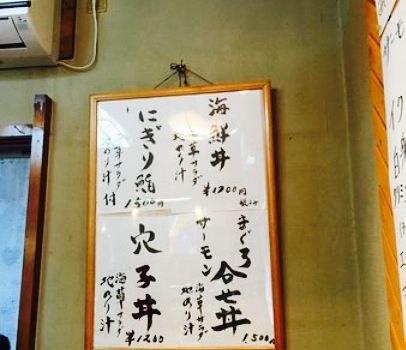 海鮮丼
海草サラダ
地のり汁
¥1200円
にぎり鮨
海草サラダ
地のり汁 付
1500円
まぐろ
サーモン
合七丼
海草サラダ
地のり汁
1,500円
穴子丼
海草サラダ
地のり汁
¥1200
サーモ
イク